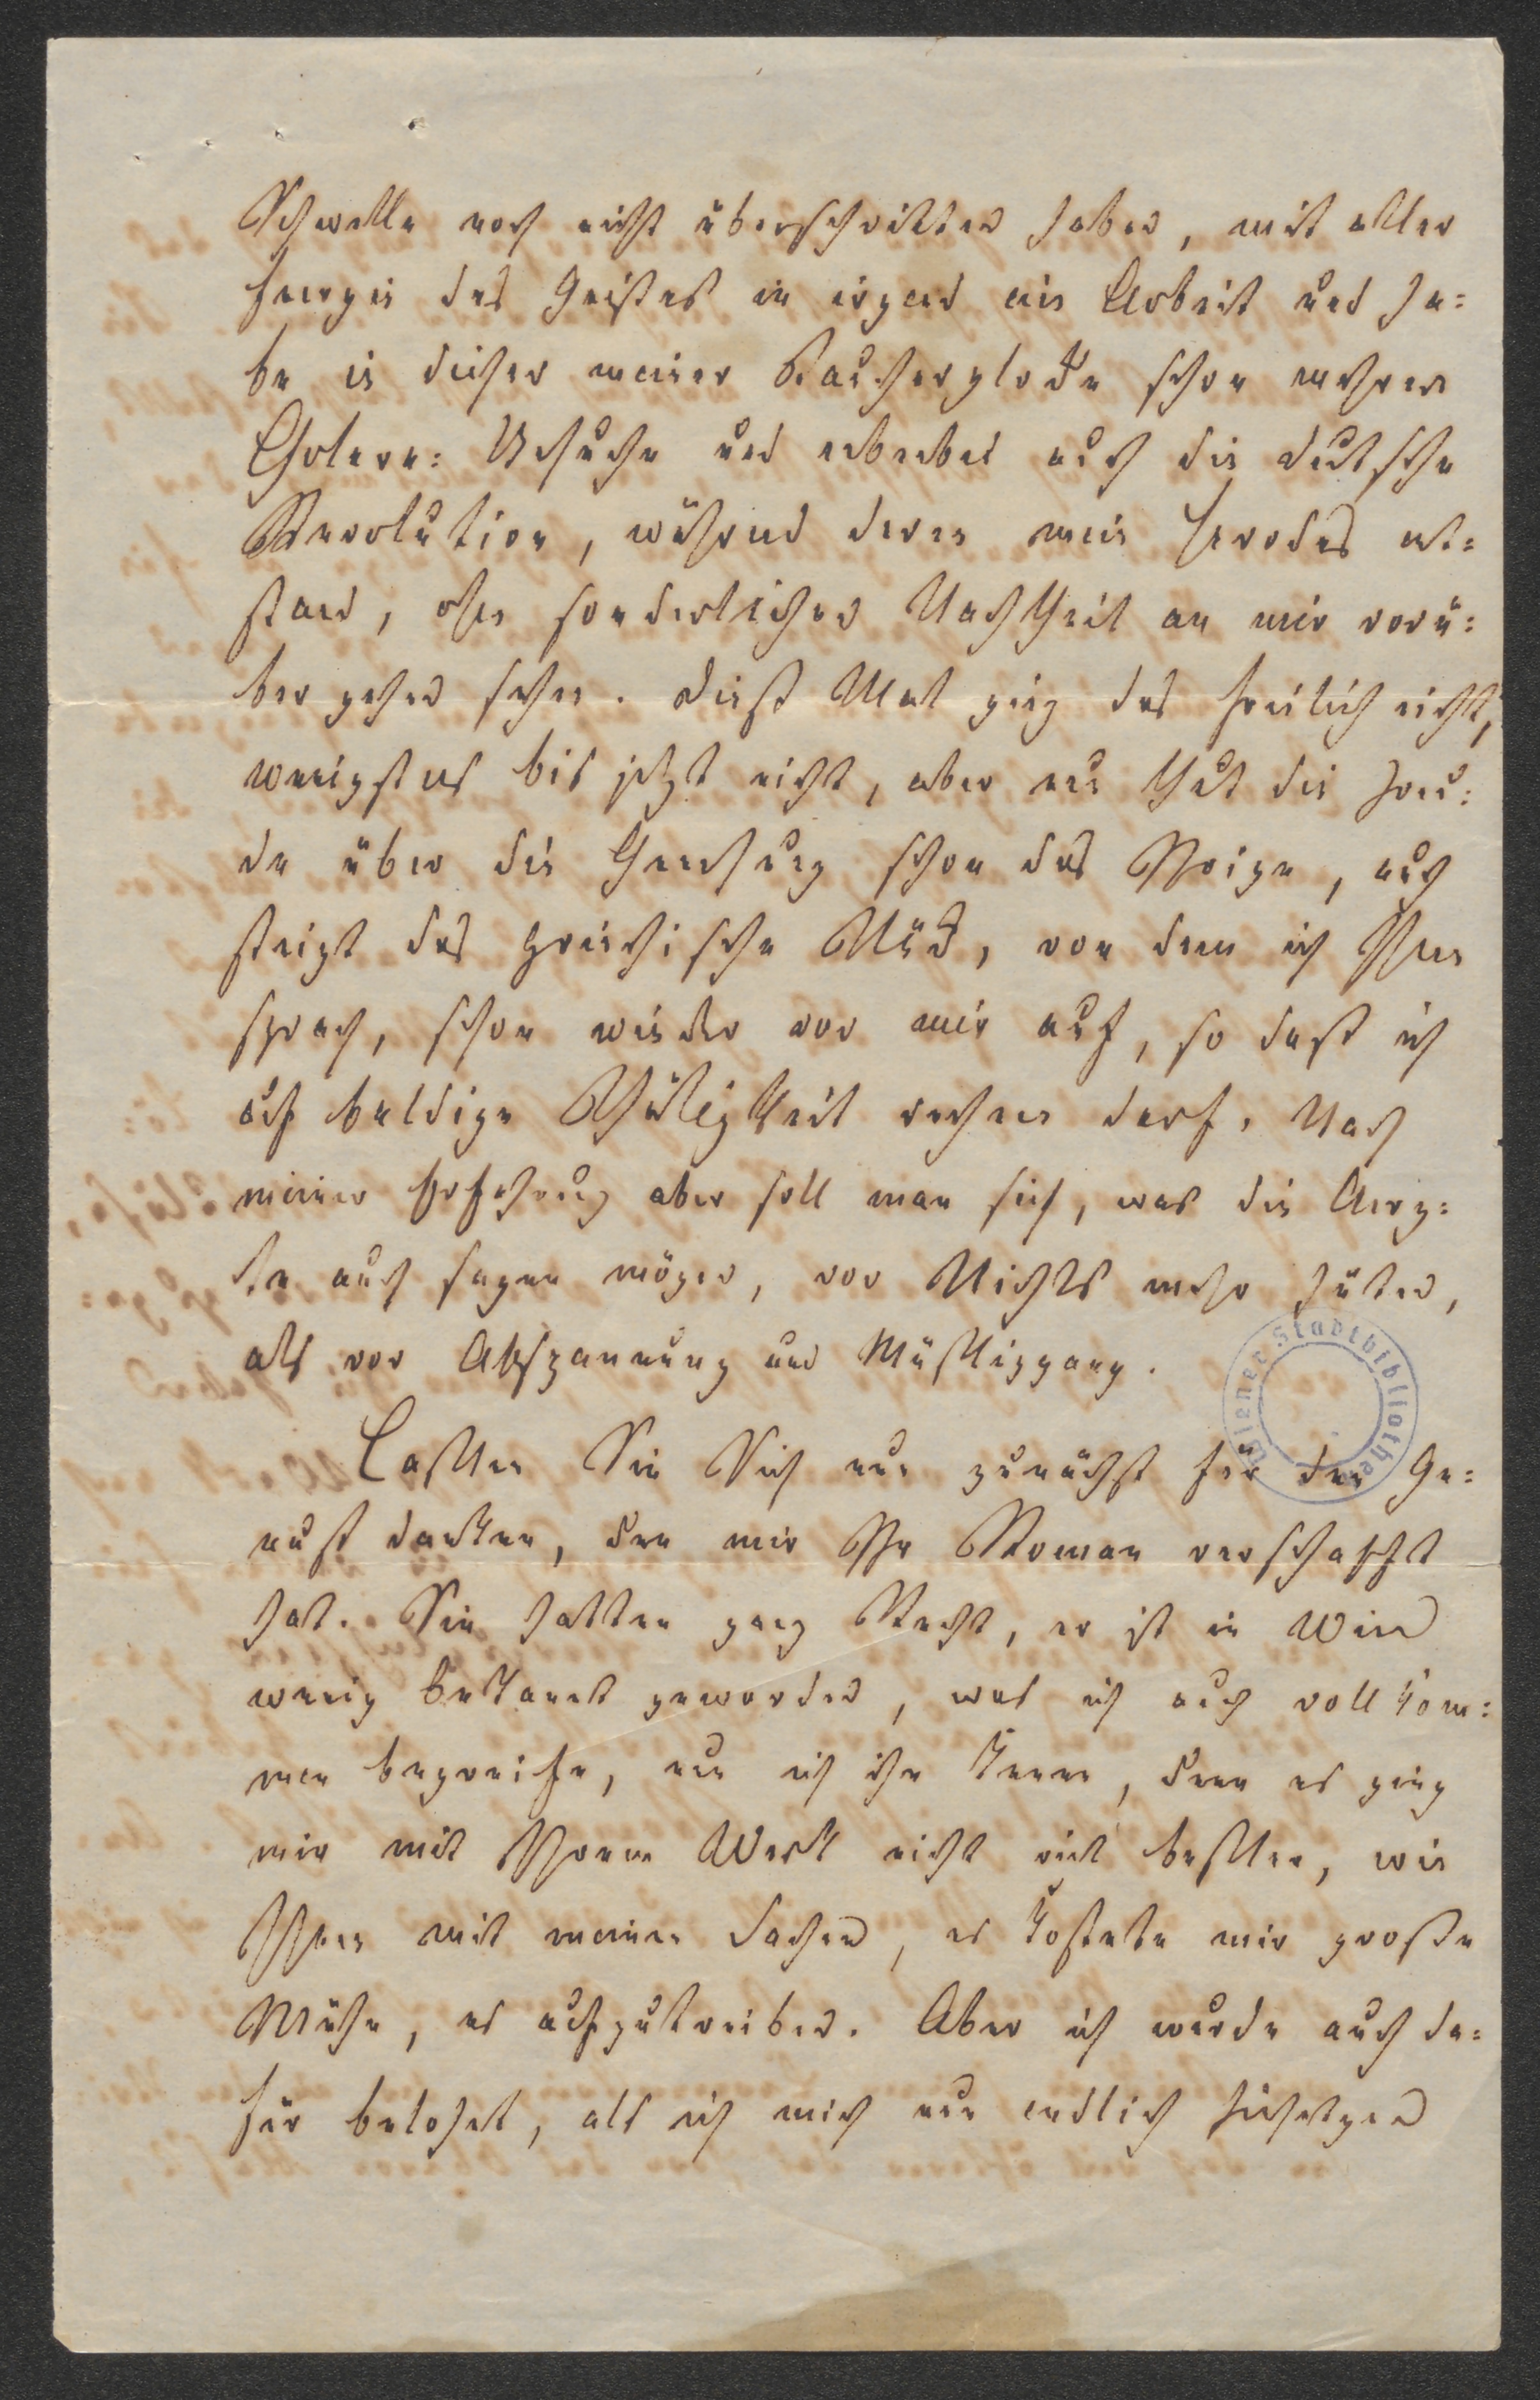 Schwelle noch nicht überschritten haben, mit aller
Energie des Geistes in irgend eine Arbeit und ha=
be in dieser meiner Taucherglocke schon mehrere
Cholera= Besuche und nebenbei auch die deutsche
Revolution, während deren mein Herodes ent=
stand, ohne sonderlichen Nachtheil an mir vorü=
ber gehen sehen. Dieß Mal ging das freilich nicht,
wenigstens bis jetzt nicht, aber nun thut die Freu=
de über die Genesung schon das Ihrige, auch
steigt das griechische Stück, von dem ich Ihnen
sprach, schon wieder vor mir auf, so daß ich
auf baldige Thätigkeit rechnen darf. Nach
meiner Erfahrung aber soll man sich, was die Aerz=
te auch sagen mögen, vor Nichts mehr hüten,
als vor Abspannung und Müßiggang.
Lassen Sie Sich nun zunächst für den Ge=
nuß danken, den mir Ihr Roman verschafft
hat. Sie hatten ganz Recht, er ist in Wien
wenig bekannt geworden, was ich auch vollkom=
men begreife, nun ich ihn kenne, denn es ging
mir mit Ihrem Werk nicht viel besser, wie
Ihnen mit meinen Sachen, es kostete mir große
Mühe, es aufzutreiben. Aber ich wurde auch da=
für belohnt, als ich mich nun endlich hinsetzen
Wiener Stadtbibliothek